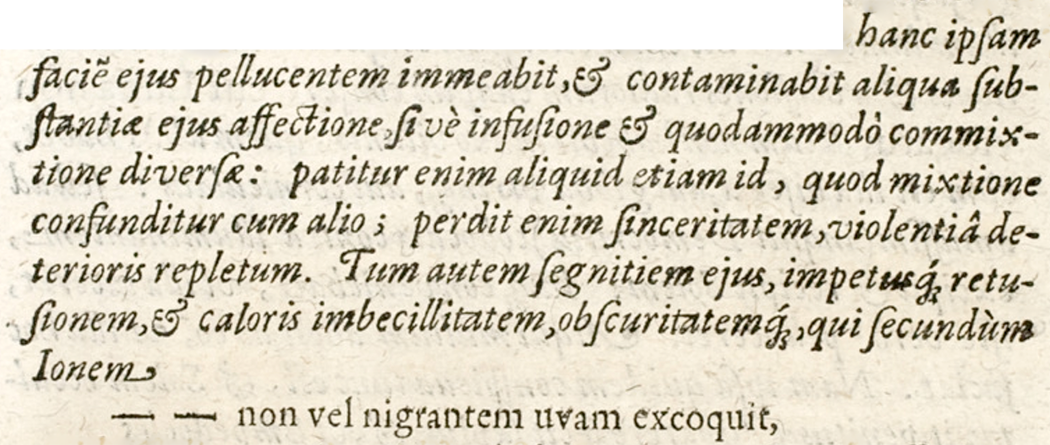 hanc ipſam
faciē ejus pellucentem immeabit, & contaminabit aliqua ſub-
ſtantiæ ejus affectione, ſi vè infuſione & quodammodò commix-
tione diverſæ: patitur enim aliquid etiam id, quod mixtione
confunditur cum alio; perdit enim ſinceritatem, violentiâ de-
terioris repletum. Tum autem ſegnitiem ejus, impetusq́; retu-
ſionem, & caloris imbecillitatem, obſcuritatemq́;, qui ſecundùm
Ionem
— — non vel nigrantem uvam excoquit,